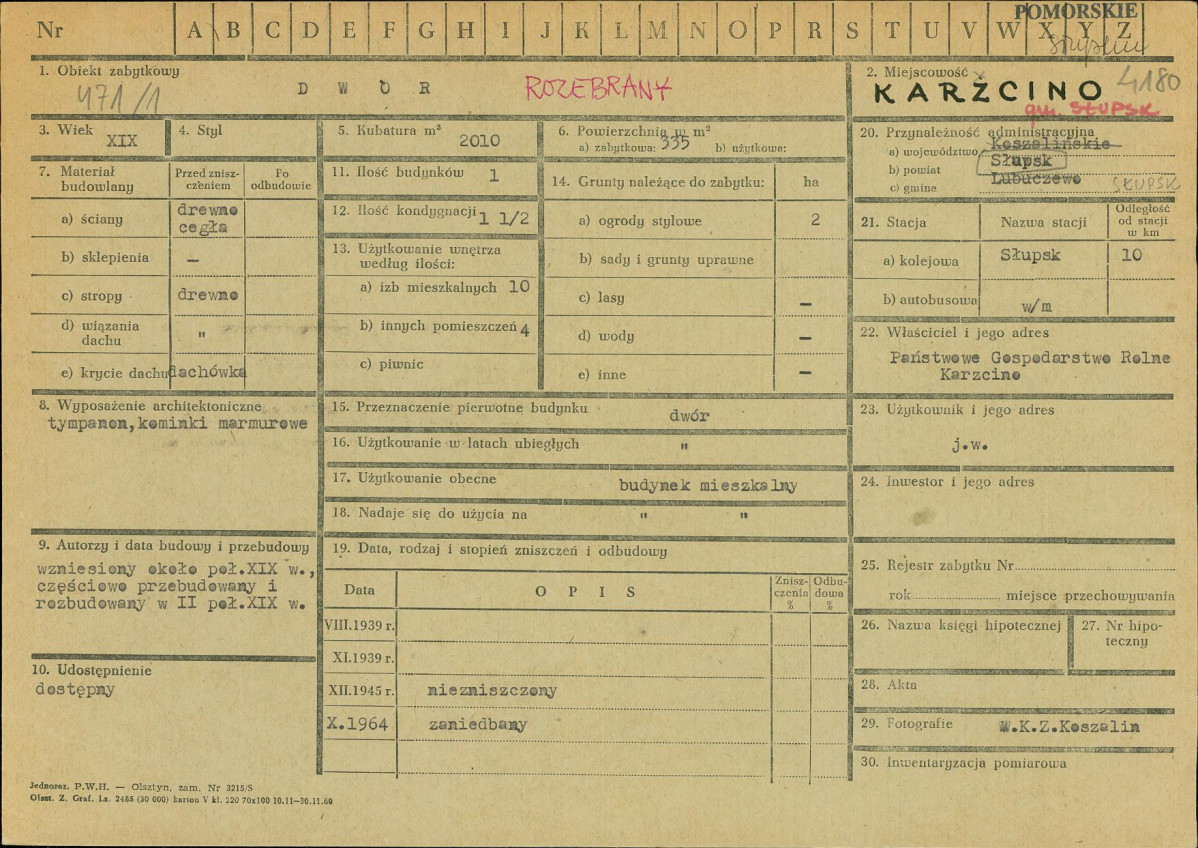 Nr A B C D E F G H I J K L M N O P R S T U V W X Y Z
POMORSKIE
1. Obiekt zabytkowy
471/1
D W Ó R
ROZEBRANY
2. Miejscowość
4180
KARŻCINO
gm. SŁUPSK
3. Wiek
XIX
4. Styl
5. Kubatura m³
2010
6. Powierzchnia w m²
a) zabytkowa: 335 b) użytkowa:
20. Przynależność administracyjna
a) województwo Koszalińskie
b) powiat Słupsk
c) gmina Lubuczewo SŁUPSK
7. Materiał budowlany
Przed zniszczeniem
Po odbudowie
a) ściany drewno cegła
b) sklepienia —
c) stropy drewno
d) wiązania dachu "
e) krycie dachu dachówka
11. Ilość budynków 1
12. Ilość kondygnacji 1 1/2
13. Użytkowanie wnętrza
według ilości:
a) izb mieszkalnych 10
b) innych pomieszczeń 4
c) piwnic
14. Grunty należące do zabytku: ha
a) ogrody stylowe 2
b) sady i grunty uprawne
c) lasy —
d) wody —
e) inne —
21. Stacja
Nazwa stacji
Odległość od stacji w km
a) kolejowa Słupsk 10
b) autobusowa w/m
22. Właściciel i jego adres
Państwowe Gospodarstwo Rolne
Karzcino
8. Wyposażenie architektoniczne
tympanon, kominki marmurowe
15. Przeznaczenie pierwotne budynku dwór
16. Użytkowanie w latach ubiegłych "
17. Użytkowanie obecne budynek mieszkalny
18. Nadaje się do użycia na " "
23. Użytkownik i jego adres
j.w.
24. Inwestor i jego adres
9. Autorzy i data budowy i przebudowy
wzniesiony około poł.XIX w.,
częściowo przebudowany i
rozbudowany w II poł.XIX w.
19. Data, rodzaj i stopień zniszczeń i odbudowy
Data
O P I S
Zniszczenia %
Odbudowa %
VIII.1939 r.
XI.1939 r.
XII.1945 r. niezniszczony
X.1964 zaniedbany
10. Udostępnienie
dostępny
25. Rejestr zabytku Nr
rok miejsce przechowywania
26. Nazwa księgi hipotecznej
27. Nr hipoteczny
28. Akta
29. Fotografie W.K.Z.Koszalin
30. Inwentaryzacja pomiarowa
Jednoraz. P.W.H. — Olsztyn, zam. Nr 3215/S
Olszt. Z. Graf. Lz. 2485 (30 000) karton V kl. 220 70x100 10.11—30.11.60